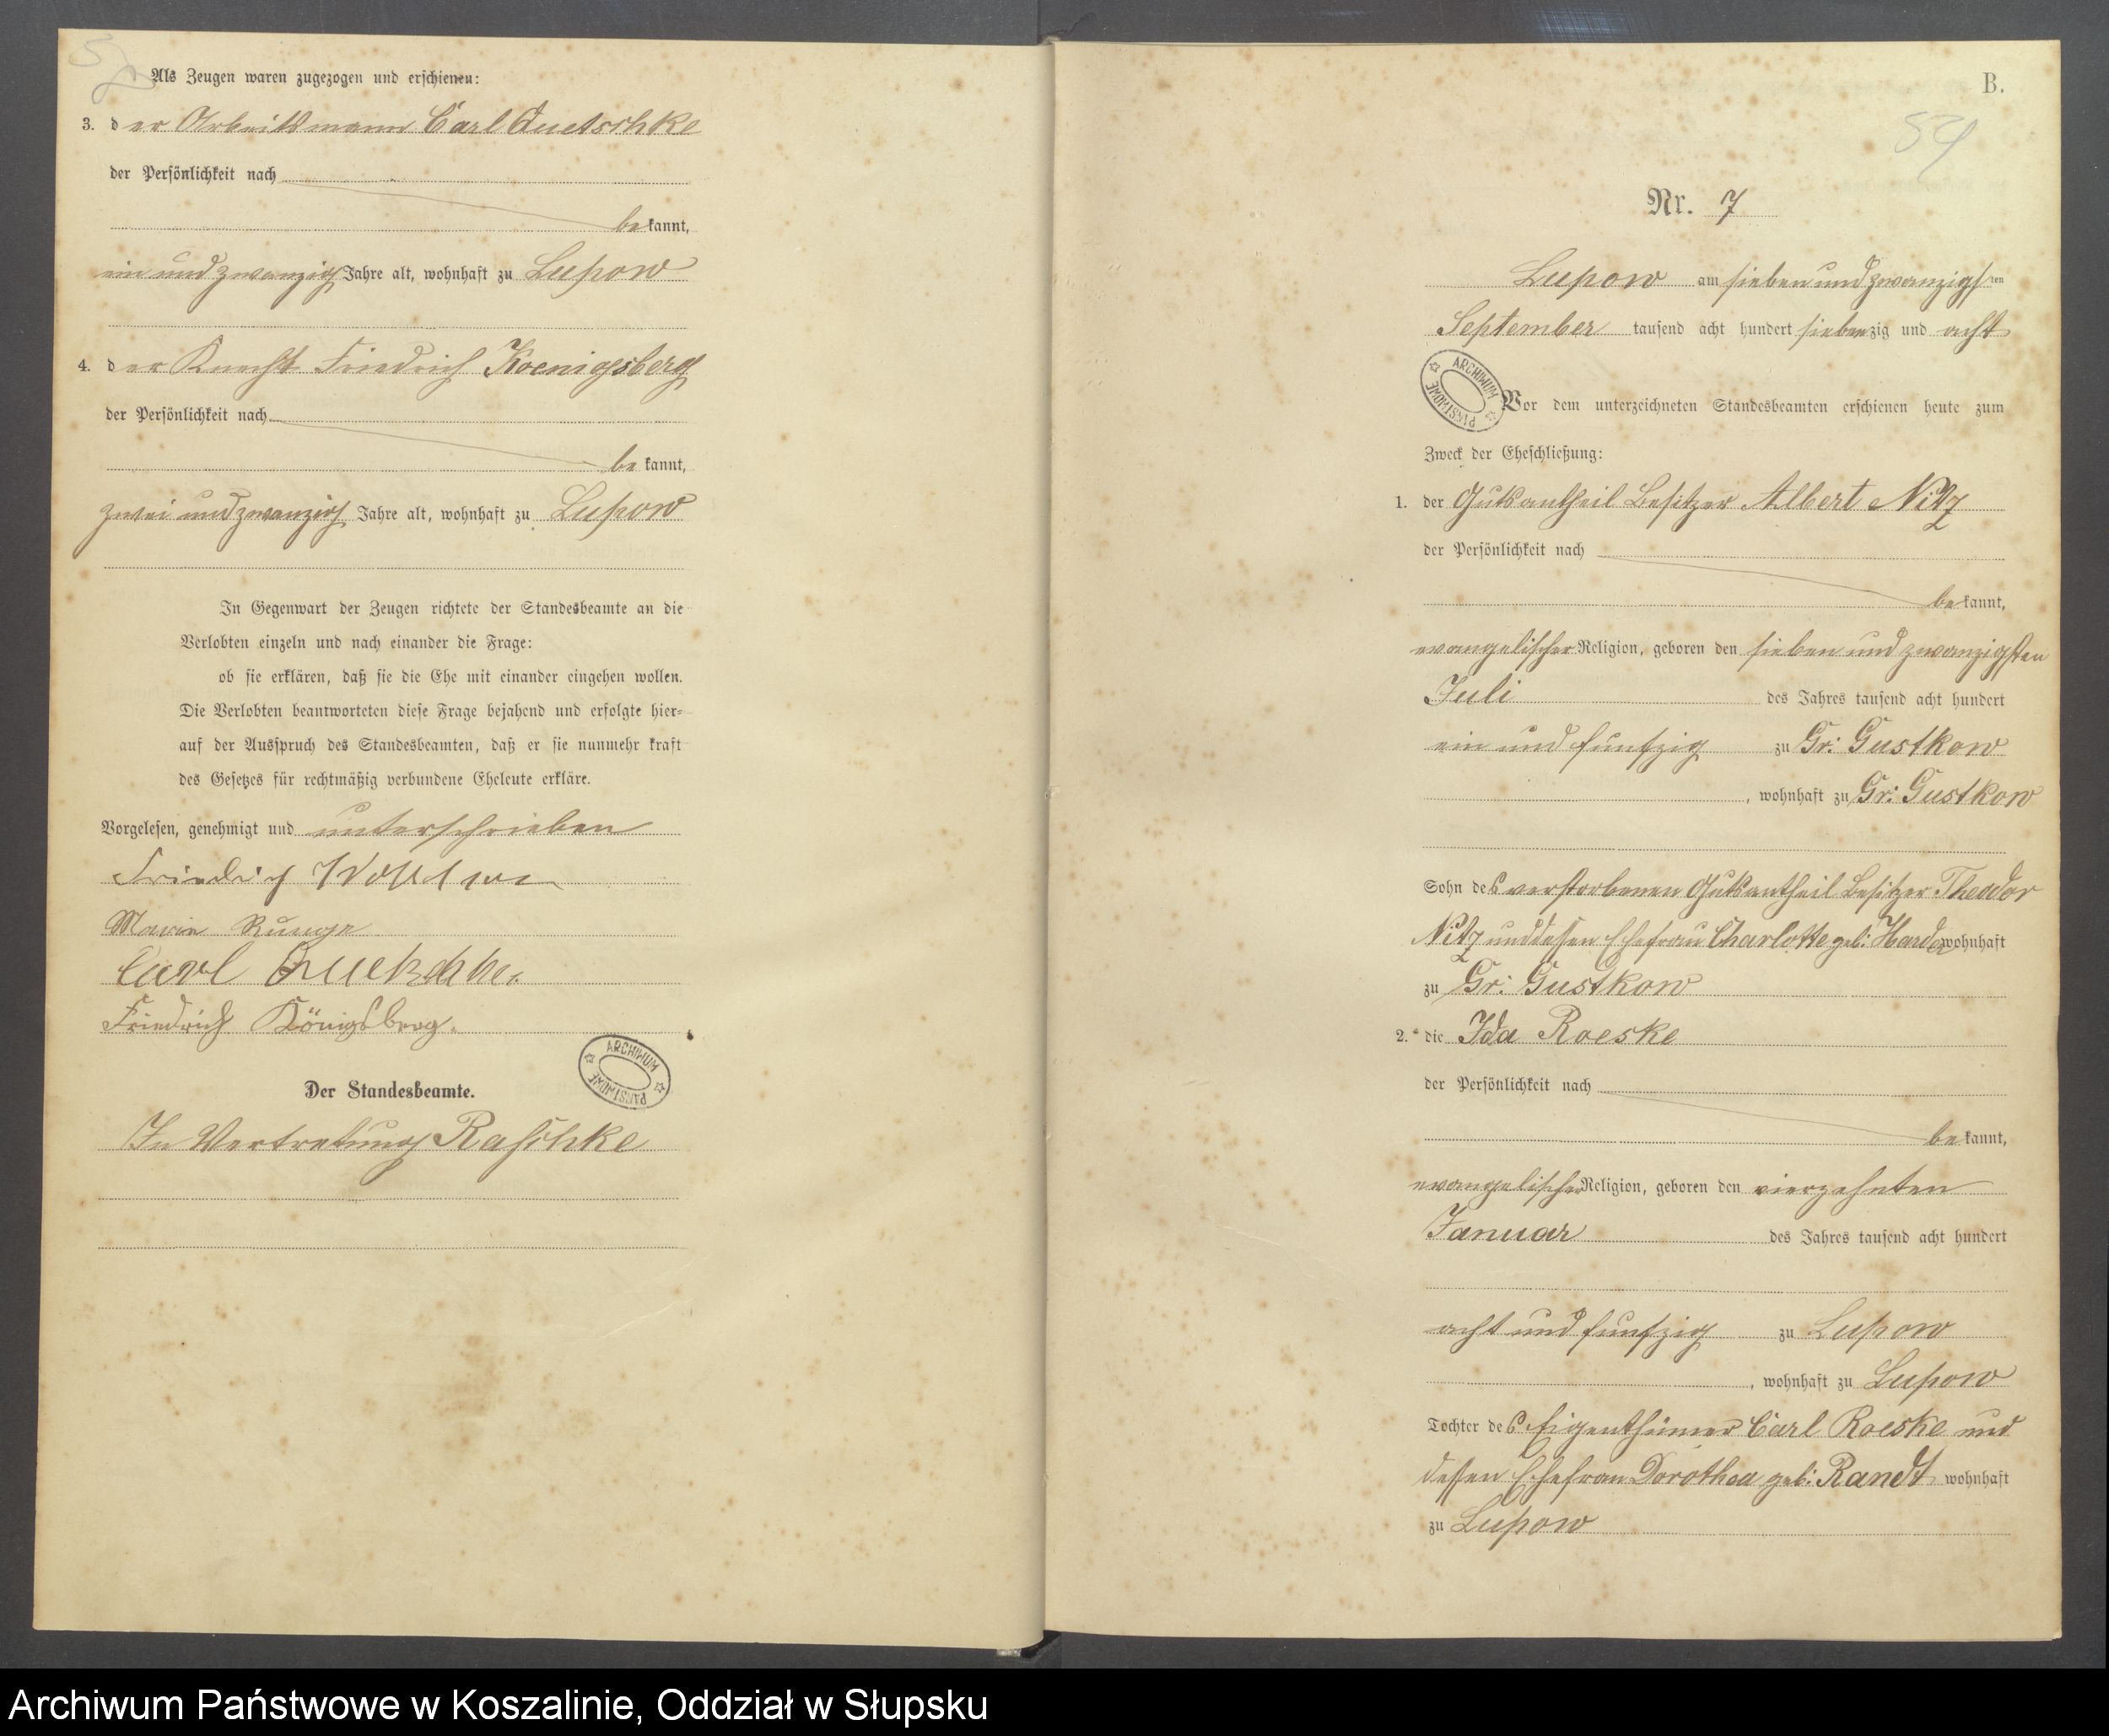 Als Zeugen waren zugezogen und erschienen:
3. der Arbeitsmann Carl Quetschke
der Persönlichkeit nach
bekannt,
ein und zwanzig Jahre alt, wohnhaft zu Lupow
4. der Knecht Friedrich Koenigsberg
der Persönlichkeit nach
bekannt,
zwei und zwanzig Jahre alt, wohnhaft zu Lupow
In Gegenwart der Zeugen richtete der Standesbeamte an die
Verlobten einzeln und nach einander die Frage:
ob sie erklären, daß sie die Ehe mit einander eingehen wollen.
Die Verlobten beantworteten diese Frage bejahend und erfolgte hier-
auf der Ausspruch des Standesbeamten, daß er sie nunmehr kraft
des Gesetzes für rechtmäßig verbundene Eheleute erkläre.
Vorgelesen, genehmigt und unterschrieben
Friedrich
Marie Runge
Carl Quetschke.
Friedrich Königsberg.
ARCHIWUM PAŃSTWOWE
Der Standesbeamte.
In Vertretung Raschke
B.
54
Nr. 7
Lupow am sieben und zwanzigsten
September tausend acht hundert siebenzig und acht
ARCHIWUM PAŃSTWOWE
Vor dem unterzeichneten Standesbeamten erschienen heute zum
Zweck der Eheschließung:
1. der Gutsantheil Besitzer Albert Nitz
der Persönlichkeit nach
bekannt,
evangelischer Religion, geboren den sieben und zwanzigsten
Juli des Jahres tausend acht hundert
ein und funfzig zu Gr: Gustkow
, wohnhaft zu Gr: Gustkow
Sohn des verstorbenen Gutsantheil Besitzer Theodor
Nitz und dessen Ehefrau Charlotte geb: Harder wohnhaft
zu Gr: Gustkow
2. die Ida Roeske
der Persönlichkeit nach
bekannt,
evangelischer Religion, geboren den vierzehnten
Januar des Jahres tausend acht hundert
acht und funfzig zu Lupow
, wohnhaft zu Lupow
Tochter des Eigenthümer Carl Roeske und
dessen Ehefrau Dorothea geb: Randt wohnhaft
zu Lupow
Archiwum Państwowe w Koszalinie, Oddział w Słupsku